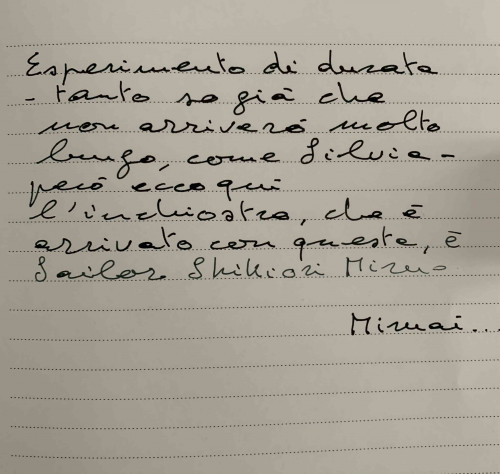 Esperimento di durata
- tanto so già che
non arriverò molto
lungo, come Silvia -
però ecco qui
l'inchiostro, che è
arrivato con queste, è
Sailor Shikiori
Mirmai...